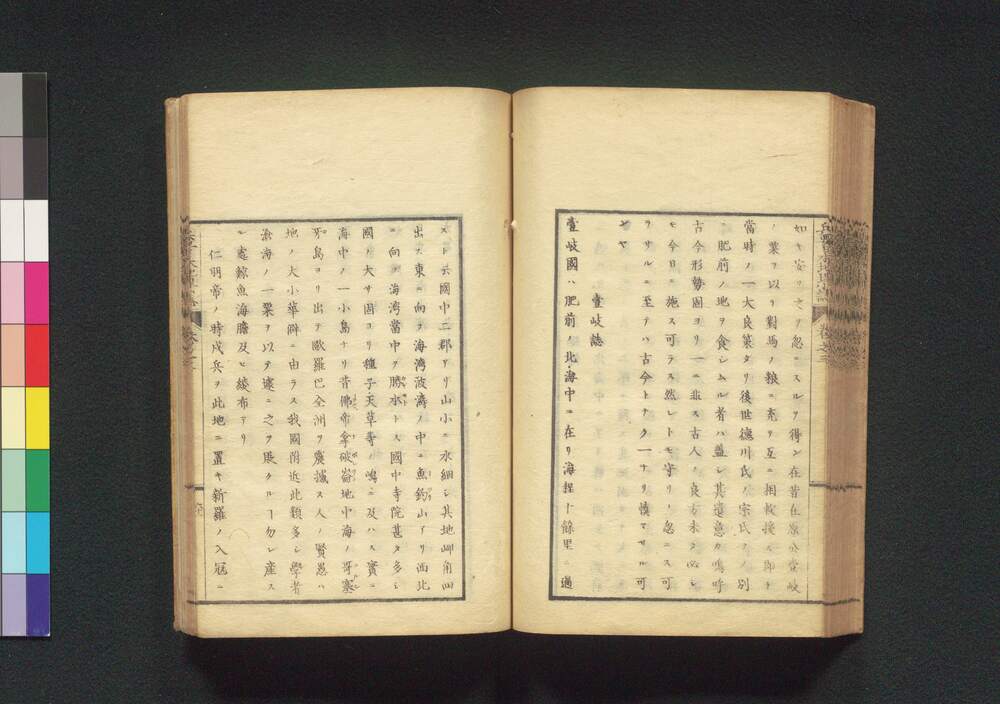 如キ安ソ之ヲ忽ニスルヲ得ン在昔在原公壹岐
ノ粟ヲ以テ對馬ノ粮ニ充テ互ニ相救援ス即チ
當時ノ一大良策タリ後世徳川氏ノ宗氏ヲ別
ニ肥前ノ地ヲ食シムル者ハ蓋シ其遺意カ嗚呼
古今形勢固ヨリ一ニ非ス古人ノ良方未タ必シ
モ今日ニ施ス可ラス然レトモ守リノ忽ニス可
ラサルニ至テハ古今トナク一ナリ慎マサル可
ケヤ
壹岐誌
壹岐國ハ肥前ノ北海中ニ在リ海程十餘里ニ過
スト云國中二郡アリ山小ニ水細シ其地岬角四
出ス東ニ向テ海湾波濤ノ中ニ魚釣山アリ西北
ニ向テ海湾當中ヲ勝本トス國中寺院甚タ多シ
國ノ大サ固ヨリ種子天草等ノ嶋ニ及ハス實ニ
海中ノ一小島ナリ昔佛帝拿破崙地中海ノ哥塞
牙島ヨリ出テ歐羅巴全洲ヲ震撼ス人ノ賢愚ハ
地ノ大小華僻ニ由ラス我國附近此類多シ學者
滄海ノ一粟ヲ以テ遽ニ之ヲ貶タルヿ勿レ産ス
ル處鯨魚海膽及ヒ綾布アリ
仁明帝ノ時戍兵ヲ此地ニ置キ新羅ノ入冦ニ